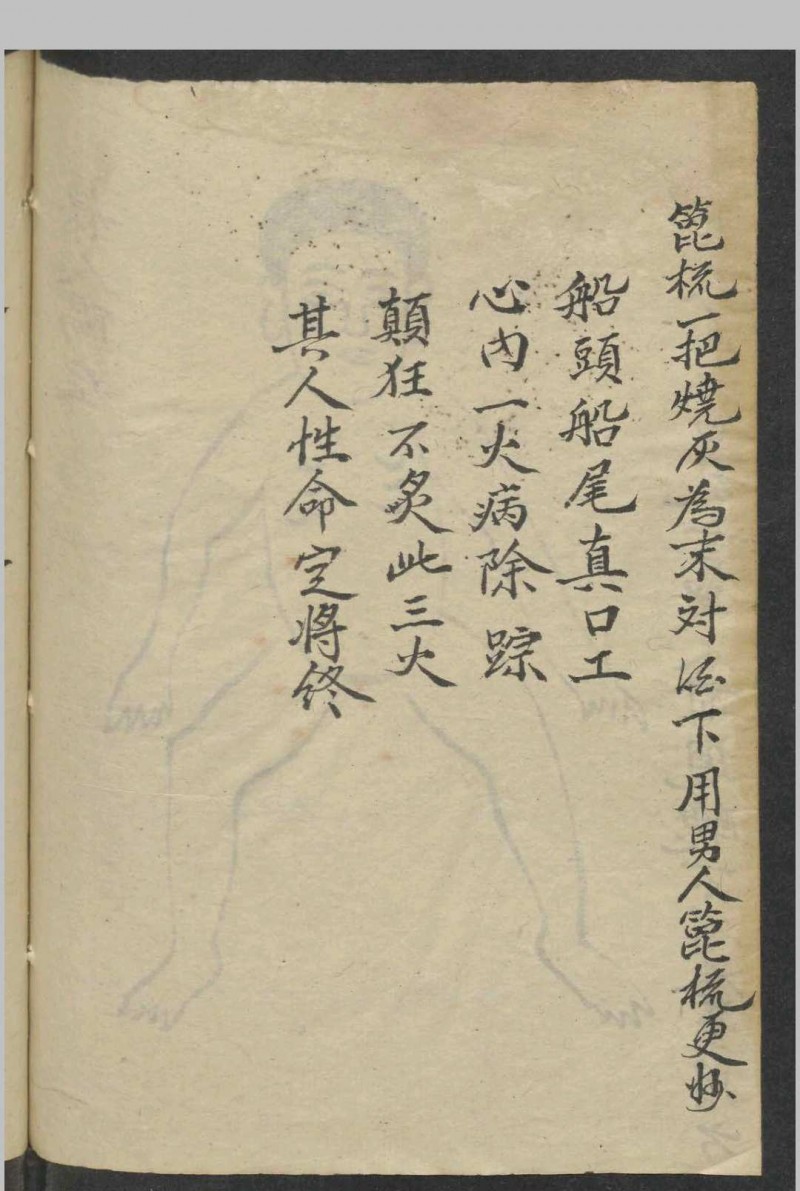 篦梳一把燒灰為末对酒下用男人篦梳更妙
船頭船尾真口工
心内一火病除踪
顛狂不炙此三火
其人性命定将终